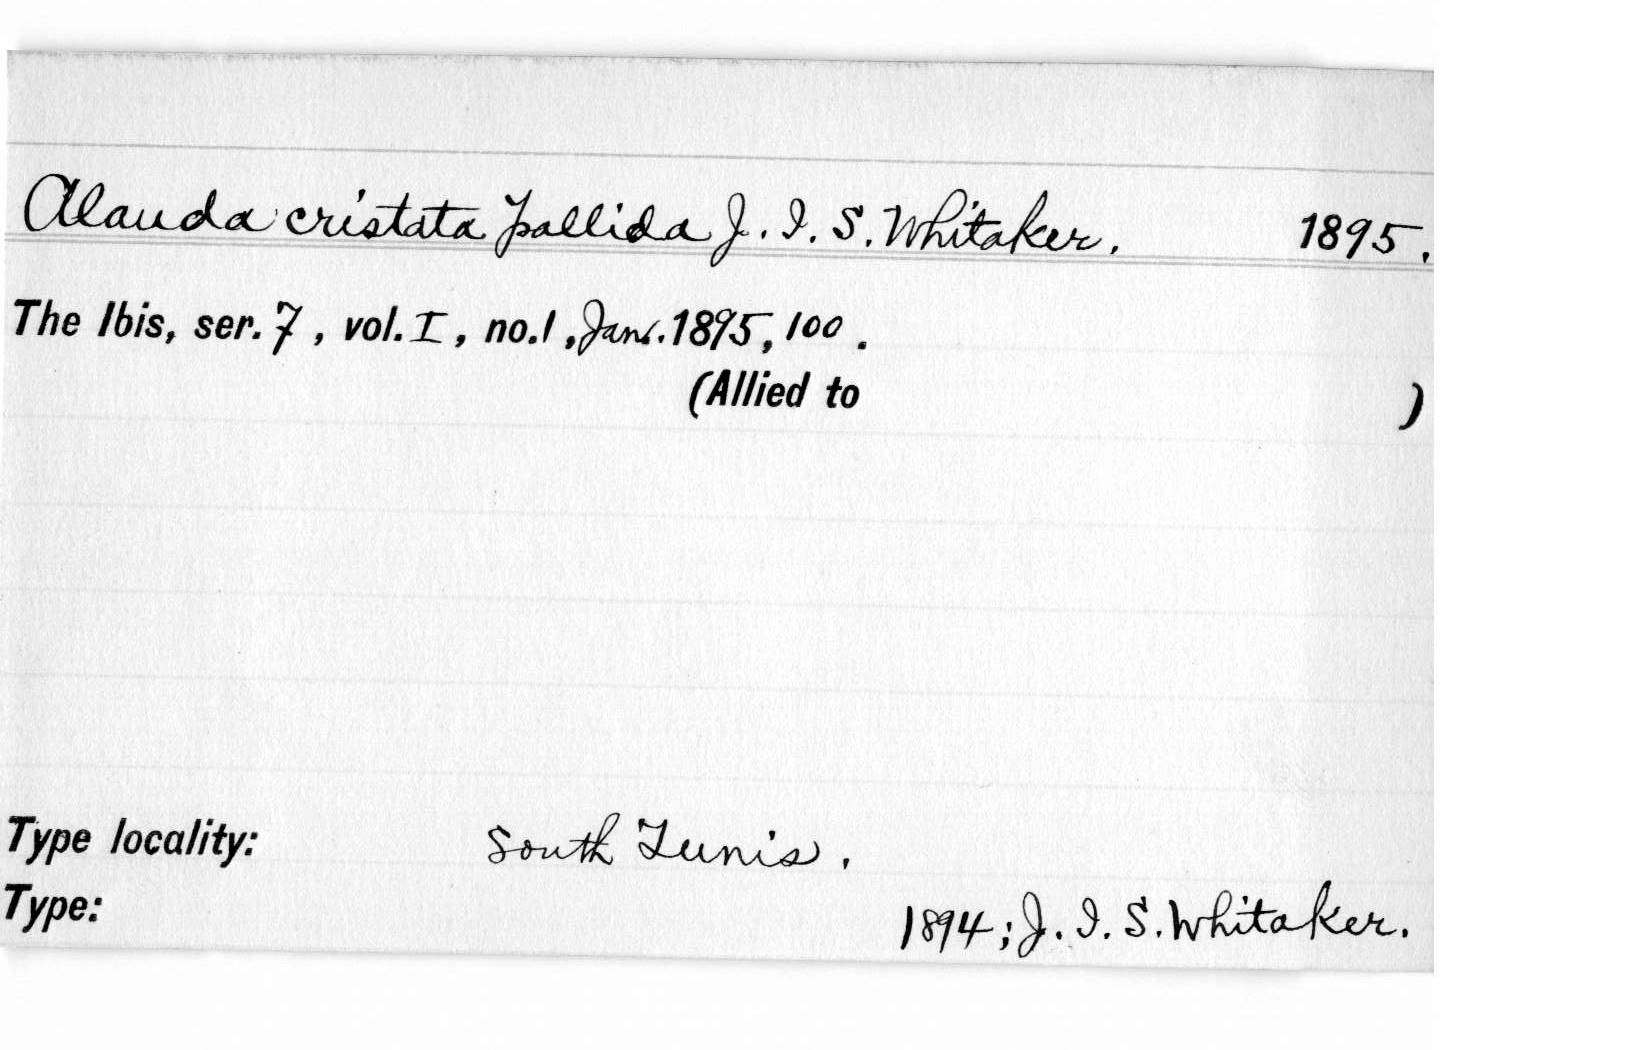 Alauda cristata pallida J. I. S. Whitaker. 1895.
The Ibis, ser. 7, vol. I, no. 1, Jan. 1895, 100.
(Allied to )
Type locality: South Tunis.
Type: 1894; J. I. S. Whitaker.